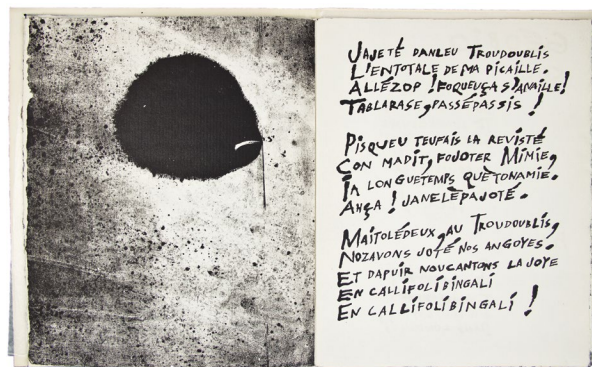 JAJETÉ DANLEU TROUDOUBLIS
L'ENTOTALE DE MA PICAILLE.
ALLÉZOP ! FOQUEUÇA S'ANAILLE !
TABLARASE, PASSÉPASSIS !
PISQUEU TEUFAIS LA REVISTÉ
CON MADIT, FOJOTER MIMIE,
IA LONGUETEMPS QUÈTONAMIE.
AHÇA ! JANELÈPAJOTÉ.
MAITOLÉDEUX, AU TROUDOUBLIS,
NOZAVONS JOTÉ NOS ANGOYES.
ET DAPUIR NOUCANTONS LA JOYE
EN CALLIFOLIBINGALI
EN CALLIFOLIBINGALI !